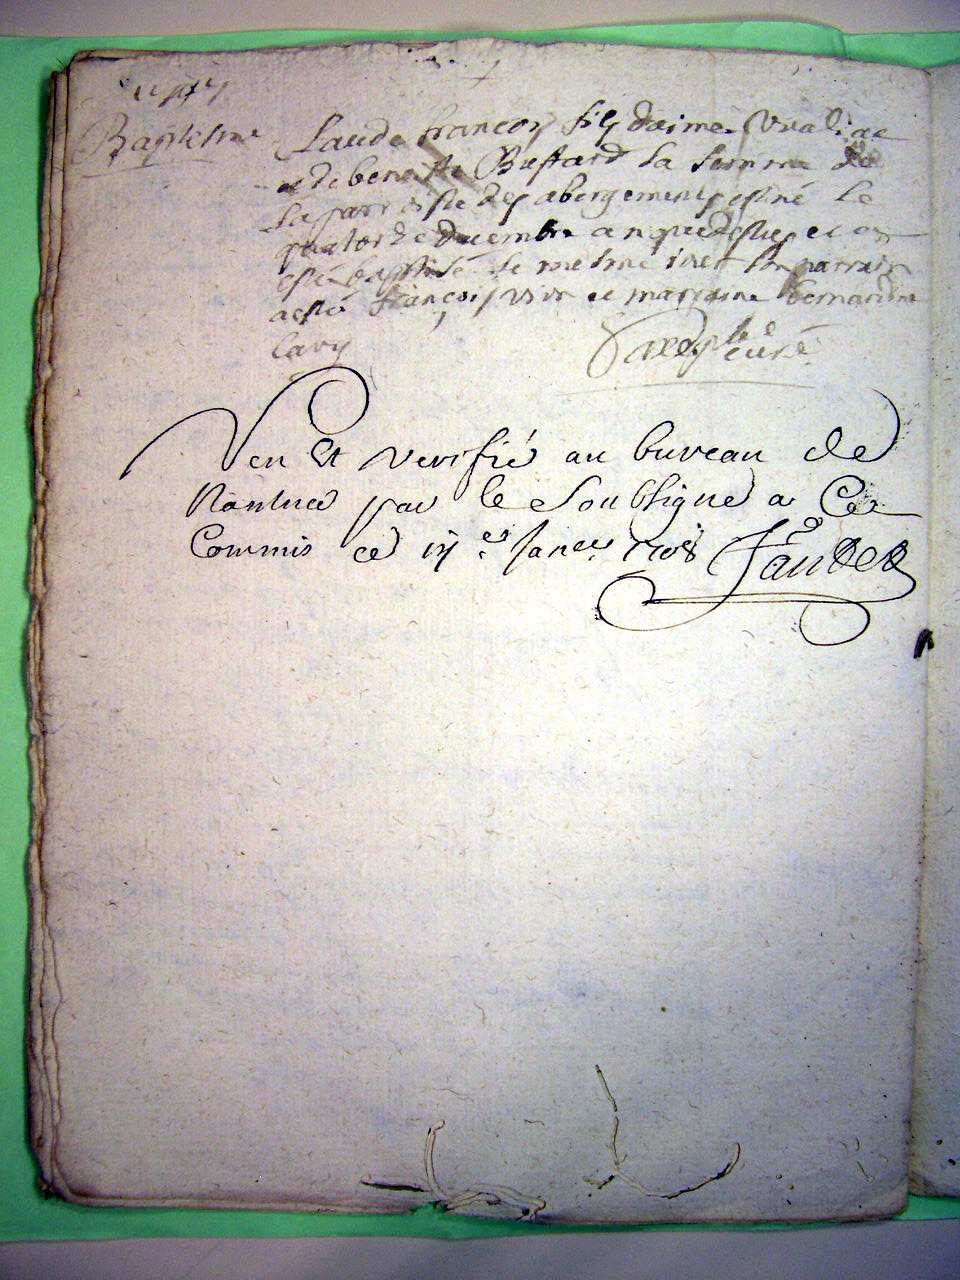 Baptesme
Laude francois fils daime Vuaillac
et de benoiste Bustard sa femme de
la parroisse des abergements est né le
quatorze decembre an que dessus et a
esté baptisé le mesme iour son parrain
a esté françois viur et marraine bernardine
lavy
le curé
Veu et veriffié au bureau de
Nantua par le Soubsigné a Ce
Commis ce iije Jance 1708 Jantet